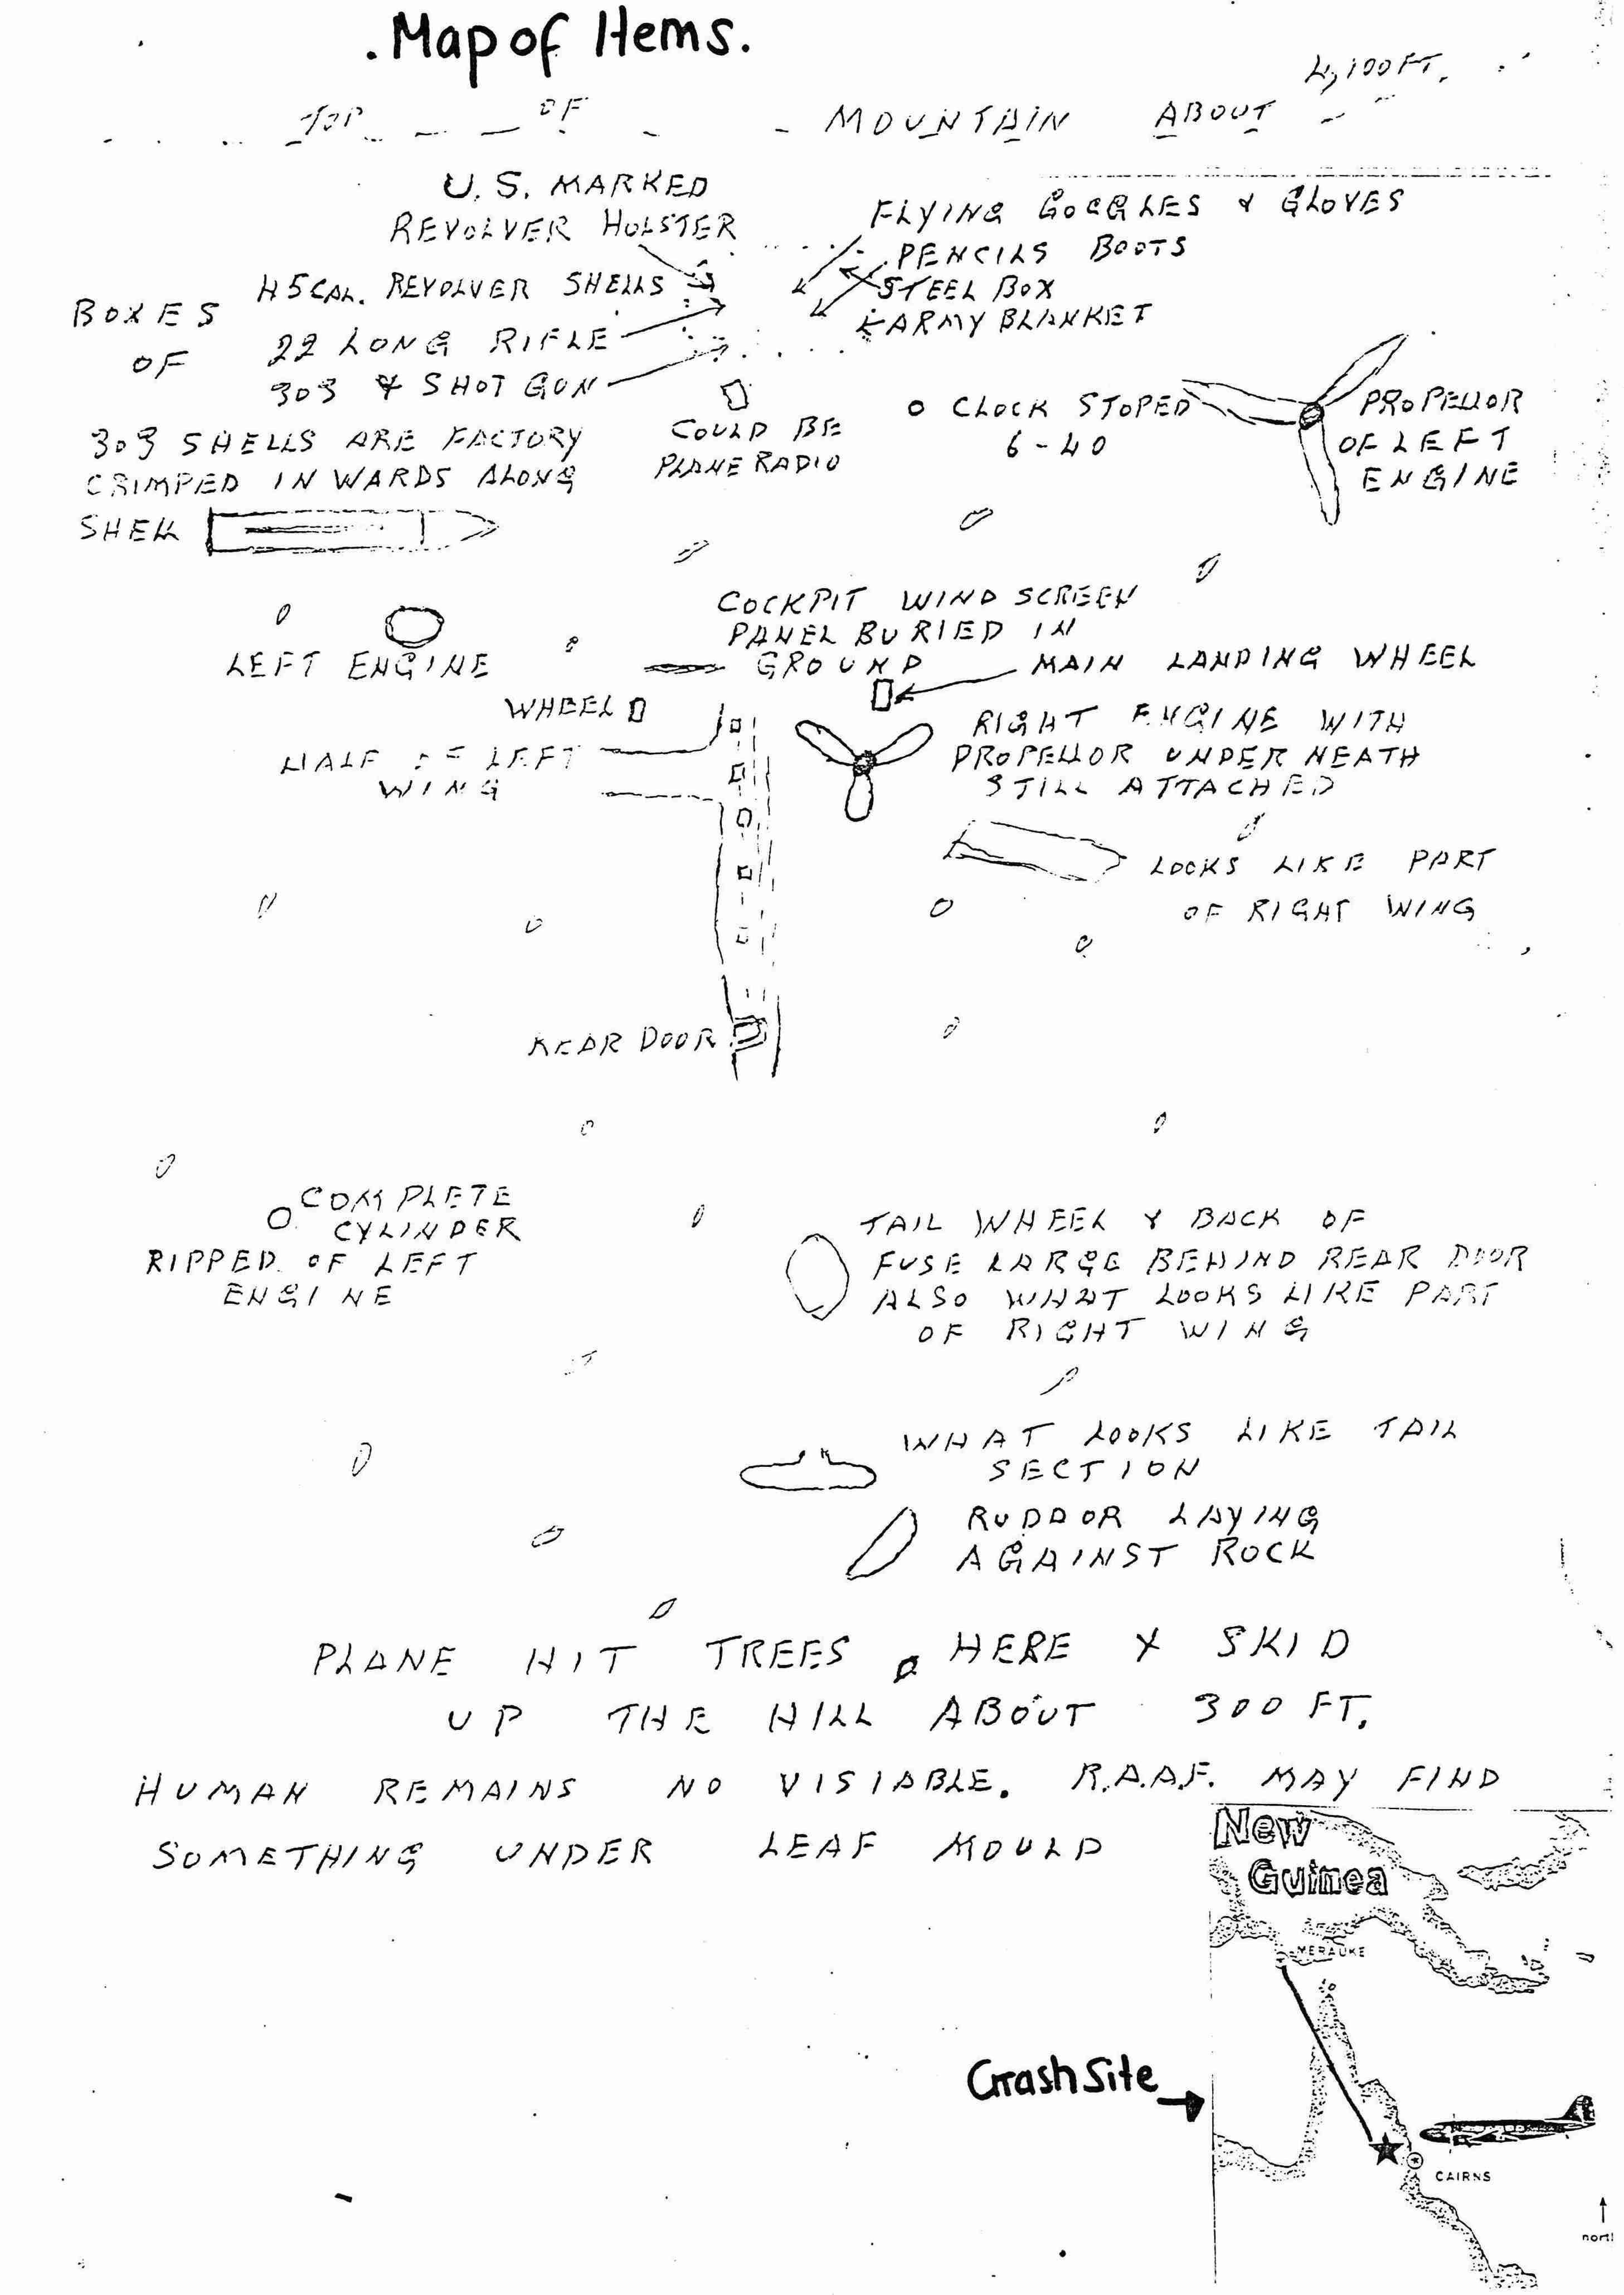 .Map of Items.
4,100 FT.
TOP OF MOUNTAIN ABOUT
U.S. MARKED
REVOLVER HOLSTER
FLYING GOGGLES & GLOVES
PENCILS BOOTS
STEEL BOX
& ARMY BLANKET
BOXES
OF
45 CAL. REVOLVER SHELLS
22 LONG RIFLE
303 & SHOT GUN
303 SHELLS ARE FACTORY
CRIMPED IN WARDS ALONG
SHELL
COULD BE
PLANE RADIO
CLOCK STOPED
6-40
PROPELLOR
OF LEFT
ENGINE
LEFT ENGINE
COCKPIT WIND SCREEN
PANEL BURIED IN
GROUND
MAIN LANDING WHEEL
WHEEL
HALF OF LEFT
WING
RIGHT ENGINE WITH
PROPELLOR UNDER NEATH
STILL ATTACHED
LOOKS LIKE PART
OF RIGHT WING
REAR DOOR
COMPLETE
CYLINDER
RIPPED OF LEFT
ENGINE
TAIL WHEEL & BACK OF
FUSE LARGE BEHIND REAR DOOR
ALSO WHAT LOOKS LIKE PART
OF RIGHT WING
WHAT LOOKS LIKE TAIL
SECTION
RUDDOR LAYING
AGAINST ROCK
PLANE HIT TREES HERE & SKID
UP THE HILL ABOUT 300 FT.
HUMAN REMAINS NO VISIABLE. R.A.A.F. MAY FIND
SOMETHING UNDER LEAF MOULD
New
Guinea
MERAUKE
Crash Site
CAIRNS
north